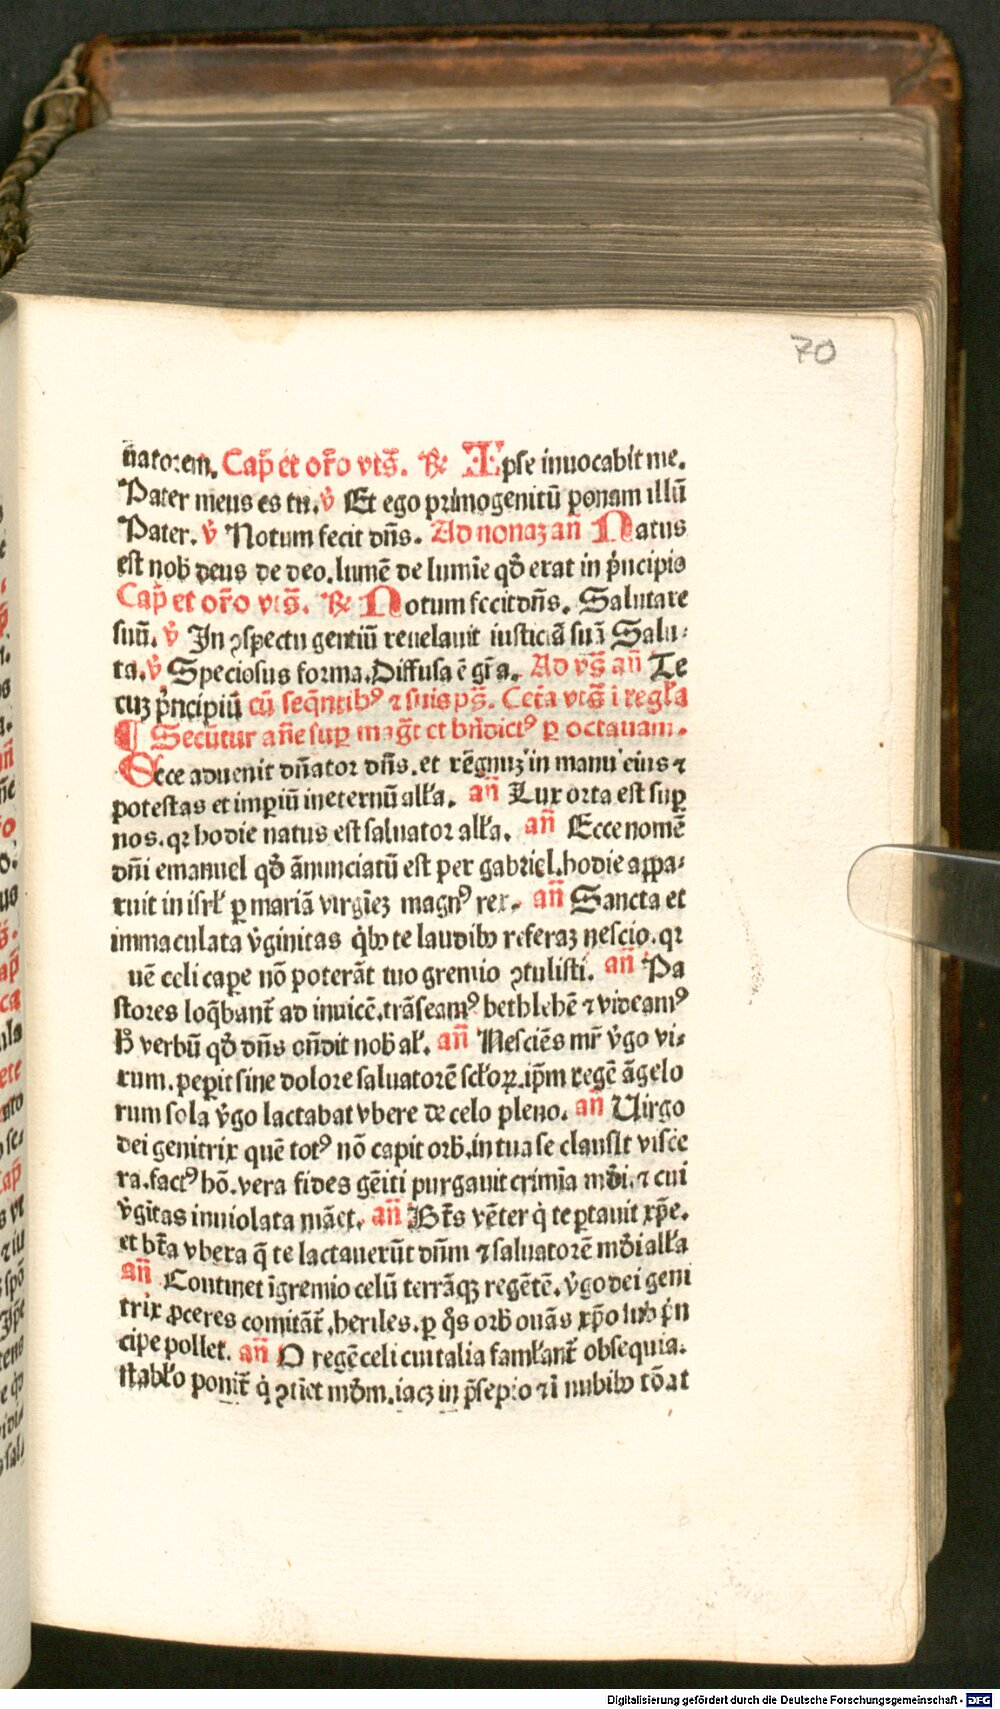 70
n̄atorem. Cap̄ et or̄o vts̄. ℟ Ipse inuocabit me.
Pater meus es tu. v̄ Et ego primogenitū ponam illū
Pater. v̄ Notum fecit dn̄s. Ad nonaꝫ an̄ Natus
est nob̄ deus de deo. lumē de lumīe qd̄ erat in p̄ncipio
Cap̄ et or̄o vts̄. ℟ Notum fecit dn̄s. Salutare
suū. v̄ In ꝯspectu gentiū reuelauit iusticiā suā Salu⸗
ta. v̄ Speciosus forma. Diffusa ē gr̄a. Ad vs̄ an̄ Te
cuꝫ p̄ncipiū cū seq̄ntibꝰ ⁊ suis ps̄. Cet̄a vts̄ i regl̄a
¶ Secūtur an̄e sup̄ magt̄ et bn̄dictꝰ ꝑ octauam.
Ecce aduenit dn̄ator dn̄s. et rēgnuꝫ in manu eius ⁊
potestas et imꝑiū in eternū all̄a. an̄ Lux orta est sup̄
nos. qꝛ hodie natus est saluator all̄a. an̄ Ecce nomē
dn̄i emanuel qd̄ ānunciatū est per gabriel. hodie appa⸗
ruit in isrl̄ ꝑ mariā virgīeꝫ magnꝰ rex. an̄ Sancta et
immaculata v̄ginitas q̄bꝰ te laudibꝰ referaꝫ nescio. qꝛ
uē celi capꝑe nō poterāt tuo gremio ꝯtulisti. an̄ Pa
stores loq̄bant̄ ad inuicē. trāseamꝰ bethlehē ⁊ videamꝰ
h̄ verbū qd̄ dn̄s on̄dit nob̄ al̄. an̄ Nesciēs mr̄ v̄go vi⸗
rum. peꝑit sine dolore saluatorē scl̄oꝝ. ip̄m regē āgelo
rum sola v̄go lactabat vbere de celo pleno. an̄ Uirgo
dei genitrix quē totꝰ nō capit orb̄. in tua se clausit visce
ra. factꝰ hō. vera fides gēiti purgauit crimīa md̄i. ⁊ cui
v̄gītas inuiolata māet. an̄ Bt̄s vēter q̄ te ꝑtauit xp̄e.
et bt̄a vbera q̄ te lactauerūt dn̄m ⁊ saluatorē md̄i all̄a
an̄ Continet ī gremio celū terrāqꝫ regētē. v̄go dei geni
trix ꝓceres comitāt̄. heriles. ꝑ q̄s orb̄ ouās xp̄o sub p̄n
cipe pollet. an̄ O regē celi cui talia faml̄ant̄ obsequia.
stabl̄o ponit̄ q̄ ꝯtīet md̄m. iacꝫ in p̄sepio ⁊ ī nubibꝰ tōat
Digitalisierung gefördert durch die Deutsche Forschungsgemeinschaft - DFG